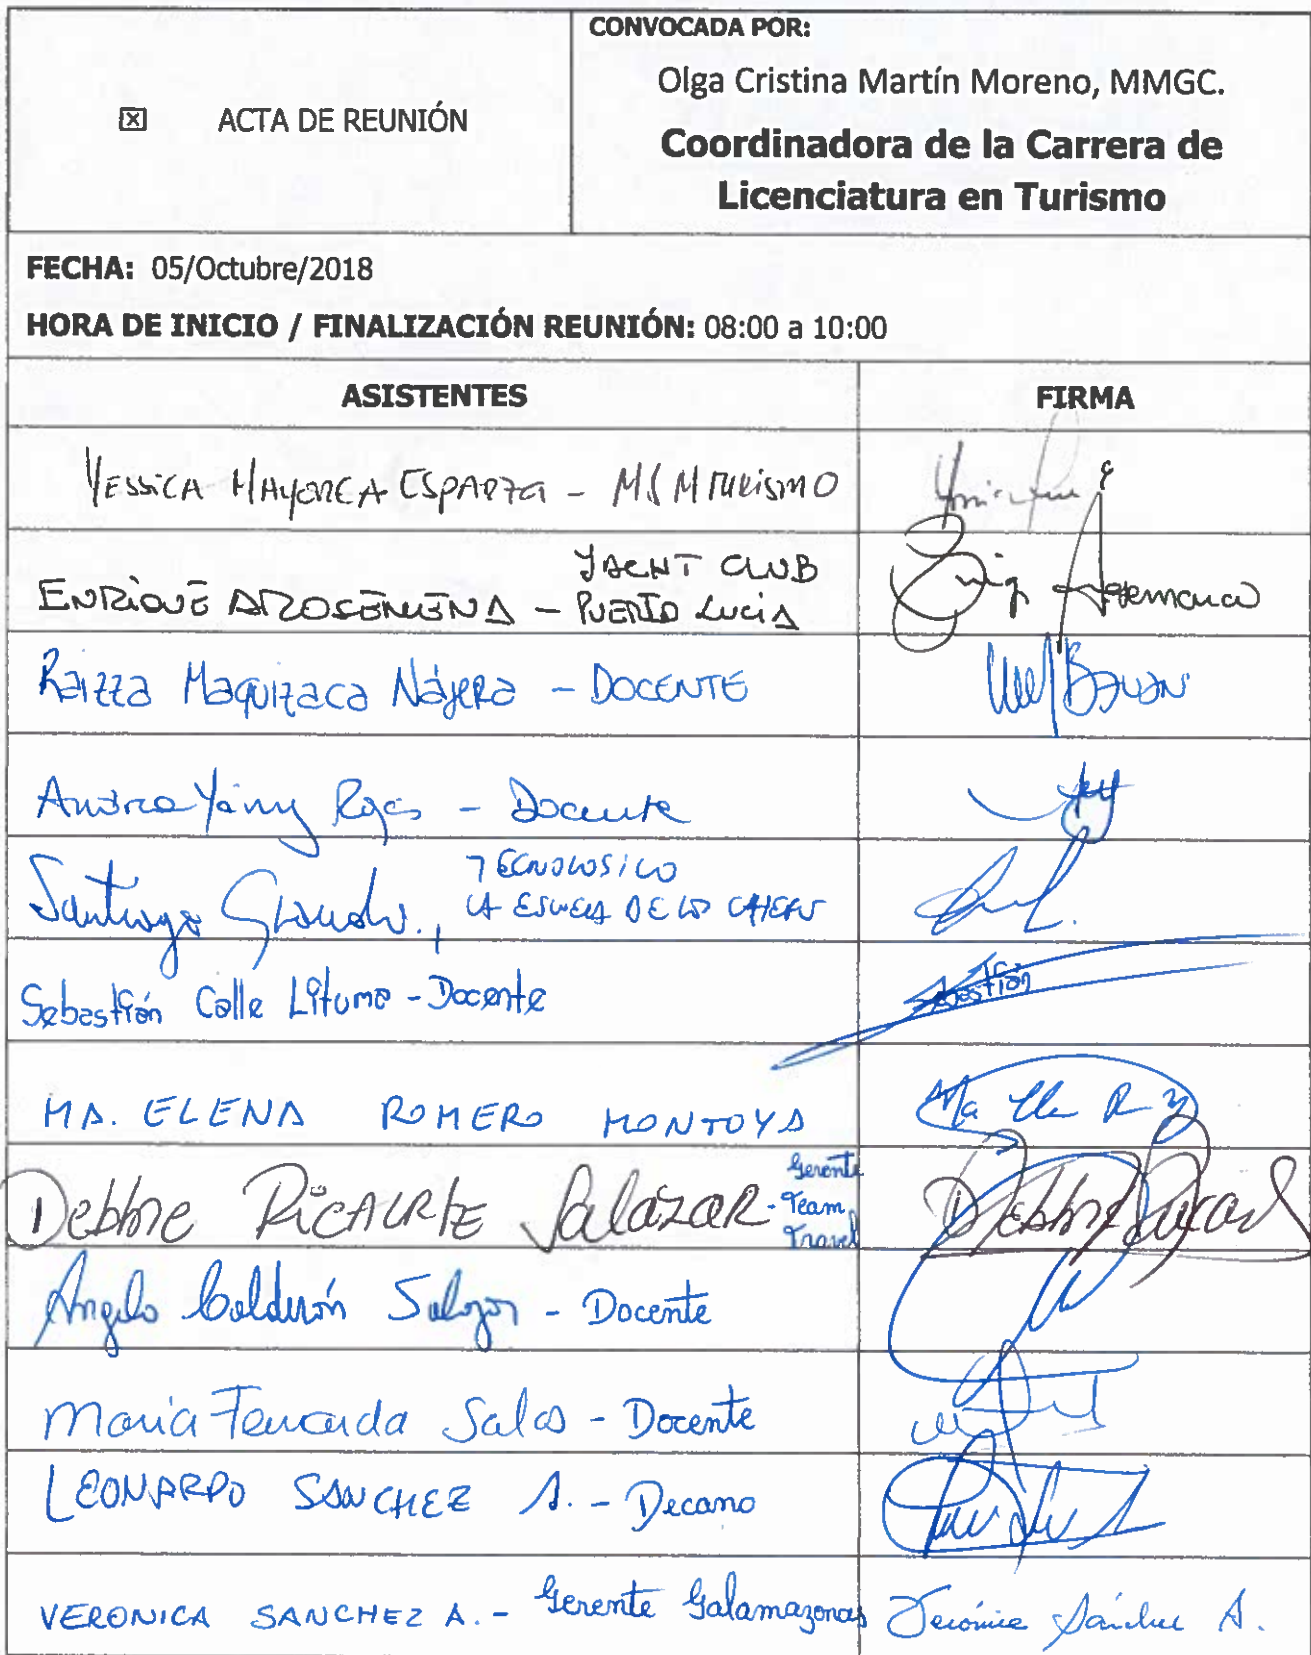 CONVOCADA POR:
☒ ACTA DE REUNIÓN
Olga Cristina Martín Moreno, MMGC.
Coordinadora de la Carrera de
Licenciatura en Turismo
FECHA: 05/Octubre/2018
HORA DE INICIO / FINALIZACIÓN REUNIÓN: 08:00 a 10:00
ASISTENTES FIRMA
YESSICA MAYORCA ESPARZA - MSM TURISMO
YACHT CLUB
ENRIQUE AROSEMENA - PUERTO LUCIA
Raizza Maquizaca Nájera - DOCENTE
Andrea Yánny Rojas - Docente
TECNOLOGICO
Santiago Granda., LA ESCUELA DE LOS CHEFS
Sebastián Calle Lituma - Docente Sebastián
MA. ELENA ROMERO MONTOYA
Gerente
Debbie RICAURTE Salazar - Team
Travel
Angelo Calderón Salazar - Docente
Maria Fernanda Salas - Docente
LEONARDO SANCHEZ A. - Decano
VERONICA SANCHEZ A. - Gerente Galamazonas Verónica Sánchez A.